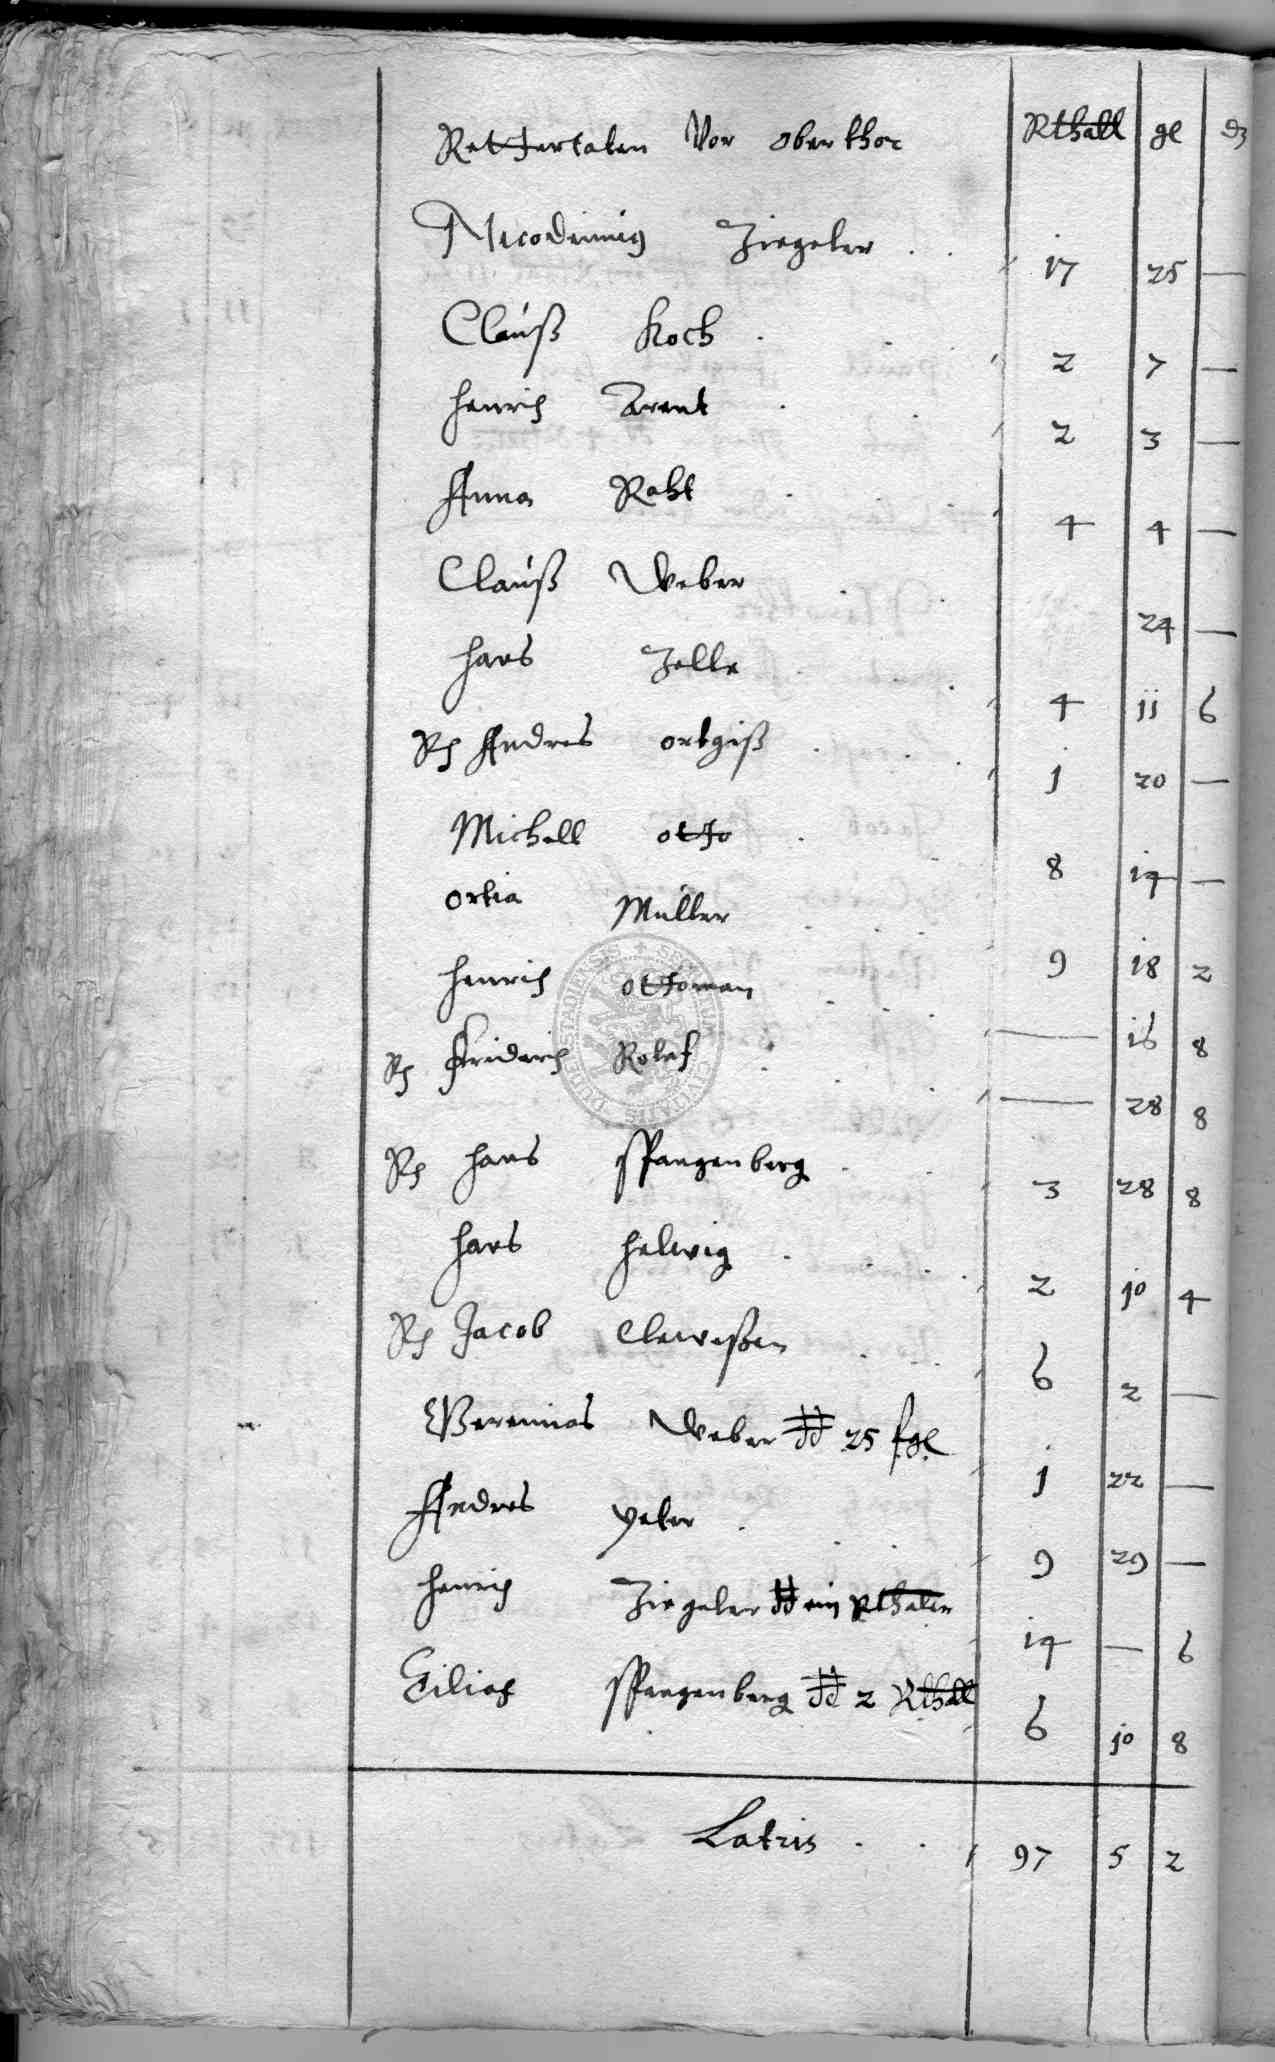 Rettertaten Vor oberthor Rthall gl d
Nicodemus Ziegeler . . 17 25 —
Clauß Koch . . 2 7 —
henrich Arent . . 2 3 —
Anna Raht . . 4 4 —
Clauß Weber . . 24 —
hans Zelle . . 4 11 6
Rh Andres ortgiß . . . 1 20 —
Michell otto . . 8 14 —
ortia Müller . . . 9 18 2
henrich ottoman . . . — 16 8
Rh Friderich Rolef . . . — 28 8
Rh hans Spangenberg . . 3 28 8
hans helwig . . . 2 10 4
Rh Jacob Clawaßen . . . 6 2 —
Weber 25 1 22 —
Andres . . . 9 29 —
henrich Ziegeler ein Rthaler 14 — 6
Spangenberg 2 Rthall 6 10 8
Latris . . 97 5 2